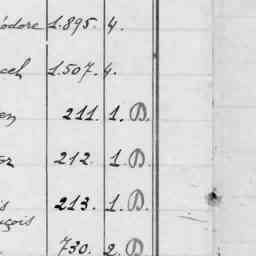 odore 1.895. 4.
ceh 1.507. 4.
en 211. 1. D.
or 212. 1. D.
is 213. 1. D.
çois
730. 2. D